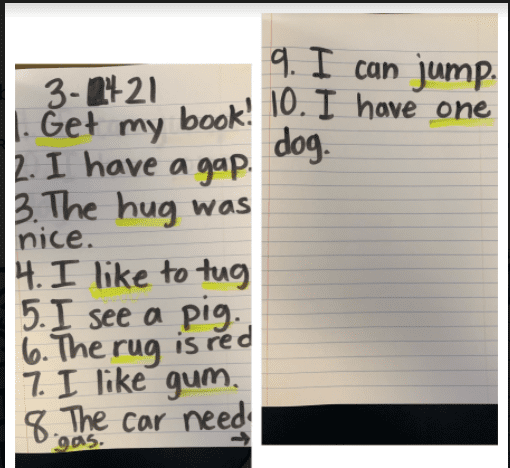 3-4-21
1. Get my book!
2. I have a gap.
3. The hug was
nice.
4. I like to tug
5. I see a pig.
6. The rug is red
7. I like gum.
8. The car need
gas.
9. I can jump.
10. I have one
dog.